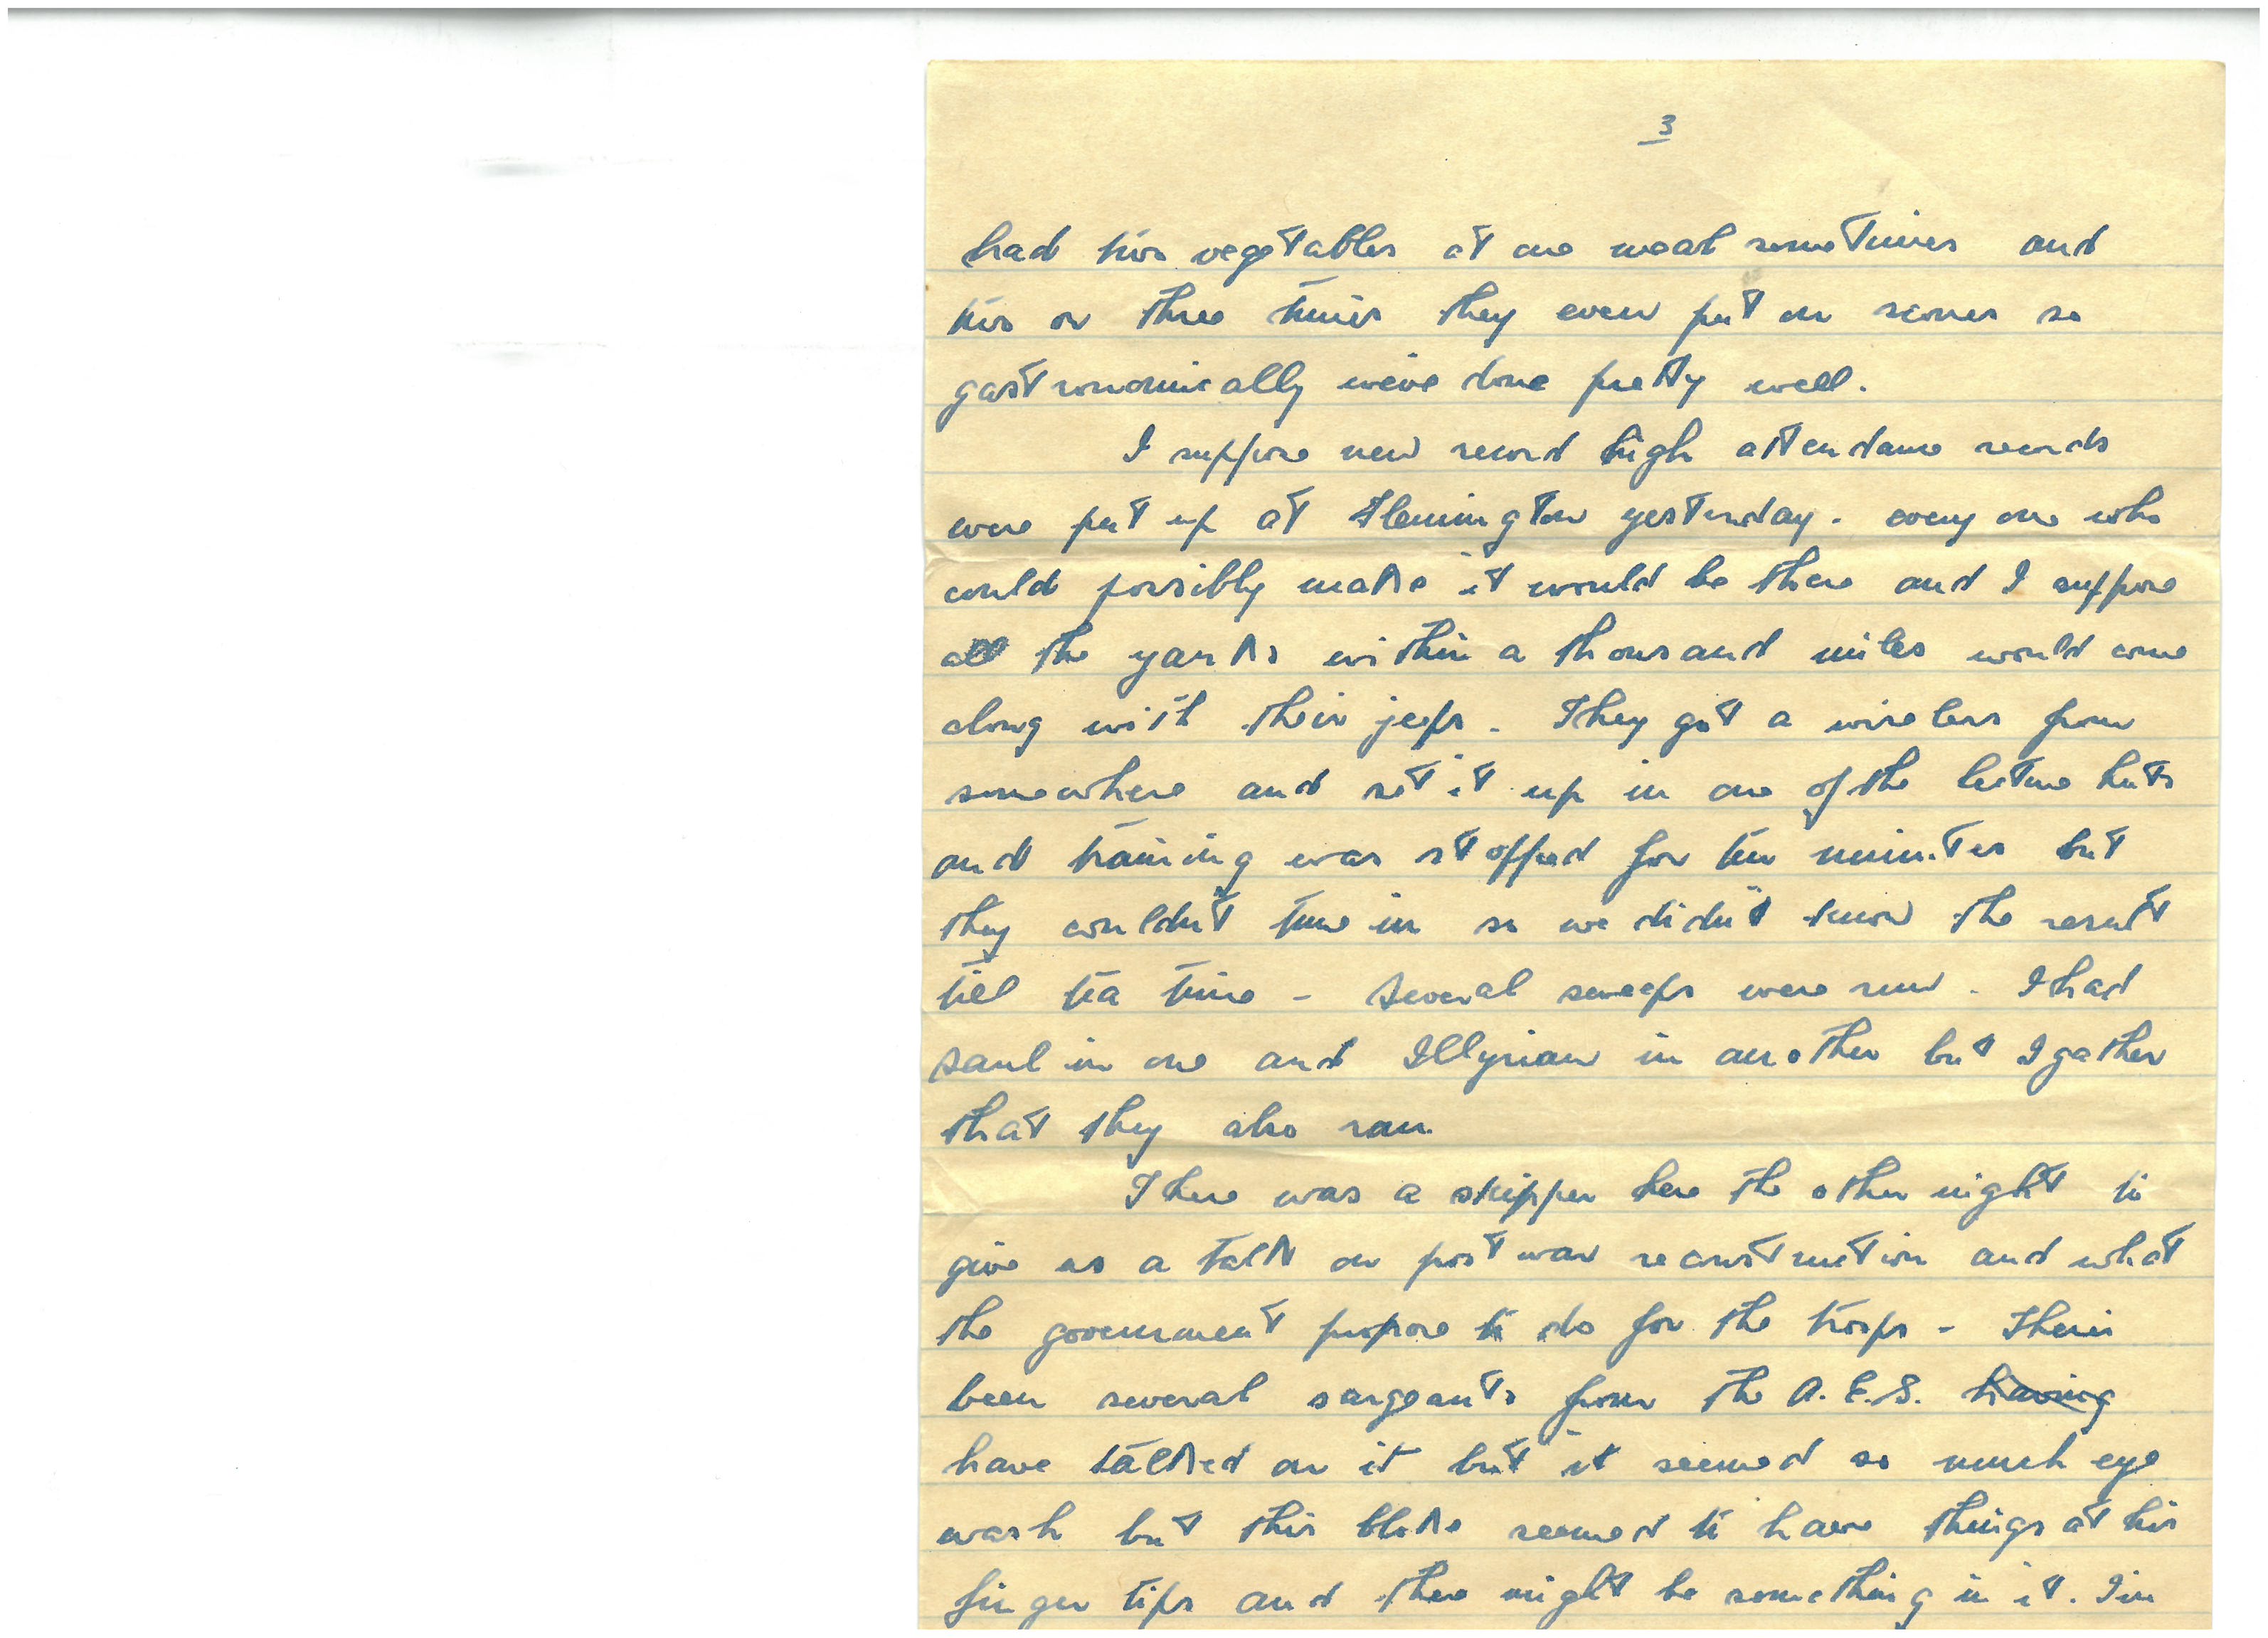 3
had two vegetables at one meal sometimes and
two or three times they even put on scones so
gastronomically we've done pretty well.
I suppose new record high attendance records
were put up at Flemington yesterday. every one who
could possibly make it would be there and I suppose
all the yanks within a thousand miles would come
along with their jeeps - They got a wireless from
somewhere and set it up in one of the lecture huts
and training was stopped for ten minutes but
they couldn't tune in so we didn't know the result
till tea time - Several sweeps were run - I had
Saul in one and Illyrian in another but I gather
that they also ran.
There was a skipper here the other night to
give us a talk on post war reconstruction and what
the government propose to do for the troops - There's
been several sargeants from the A.E.S. having
have talked on it but it seemed so much eye
wash but this bloke seemed to have things at his
finger tips and there might be something in it. I'm